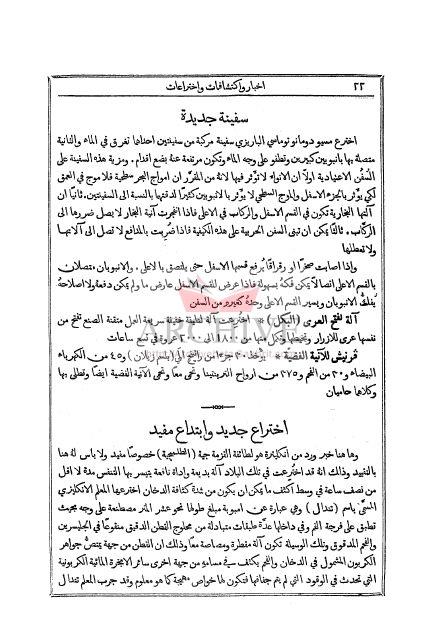 ٢٢ اخبار واكتشافات واختراعات
سفينة جديدة
اخترع مسيو دومانو توماسي الباريزي سفينة مركبة من سفينتين احداهما تغرق في الماء والثانية
متصلة بها بانبوبين كبيرين وتطفو على وجه الماء وتكون مرتفعة عنه بضع اقدام. ومزية هذه السفينة على
السفن الاعتيادية اولًا ان الانواء لا تؤثر فيها لانه من المقرر ان امواج البحر سطحية فلا موج في العمق
لكي يؤثر بالجزء الاسفل والموج السطحي لا يؤثر بالانبوبين كثيرًا لدقتهما بالنسبة الى السفينتين. ثانيًا ان
آلتها البخارية تكون في القسم الاسفل والركاب في الاعلى فاذا انفجرت آنية البخار لا يصل ضررها الى
الركاب. ثالثًا يمكن ان تبنى السفن الحربية على هذه الكيفية فاذا ضربت بالمدافع لا تصل الى آلاتها
ولا تعطلها
واذا اصابت صخرًا او رقراقًا يرفع قسمها الاسفل حتى يلتصق بالاعلى. والانبوبان متصلان
بالقسم الاعلى اتصالًا يمكن فكه بسهولة فاذا عرض للقسم الاسفل عارض ما ولم يمكن دفعه ولا اصلاحه
يفك الانبوبان ويسير القسم الاعلى وحده كغيره من السفن
آلة لفتح العرى (البكل) * اخترعت آلة لطيفة خفيفة سريعة العمل متقنة الصنع تفتح من
نفسها عرى للازرار وتخيطها وتكمل منها من ١٨٠٠ الى ٢٠٠٠ عروة في تسع ساعات
قرنيش للآنية الفضية * يؤخذ ٣٠ جزء من راتنج الى (بلسم) و٤٥ من الكهرباء
البيضاء و٣٠ من الفحم و٣٧٥ من ارواح الترينتينا وتحمى معًا وتحمى الآنية الفضية ايضًا وتطلى بها
وكلاهما حاميان
اختراع جديد وابتداع مفيد
وها هنا خبر ورد من انكلترة هو لطائفة التزمه جية (الطلمبجية) خصوصًا مفيد ولا باس له هنا
بالتقييد وذلك انه قد اخترعت في تلك البلاد آلة بديعة واداة نافعة يتيسر بها التنفس مدة لا اقل
من نصف ساعة في وسط اكثف ما يمكن ان يكون من شدة كثافة الدخان اخترعها المعلم الانكليزي
المسمى باسم (تندال) وهي عبارة عن انبوبة مبلغ طولها نحو عشر المتر مصطنعة على وجه بحيث
تطبق على فرجة الفم وفي داخلها عدة طبقات متبادلة من محلوج القطن الدقيق منقوعًا في الجليسرين
والفحم المدقوق وتلك الوسيلة تكون آلة مقطرة ومصاصة معًا وذلك ان القطن من جهة يمتص جواهر
الكربون المشمول في الدخان والفحم يكثف في مسامه من جهة اخرى سائر الابخرة المائية الكربونية
التي تحدث في الوقود التي لم يتم جفافها فتكون لها خواص مهيجة كما هو معلوم وقد جرب المعلم تندال
ARCHIVE